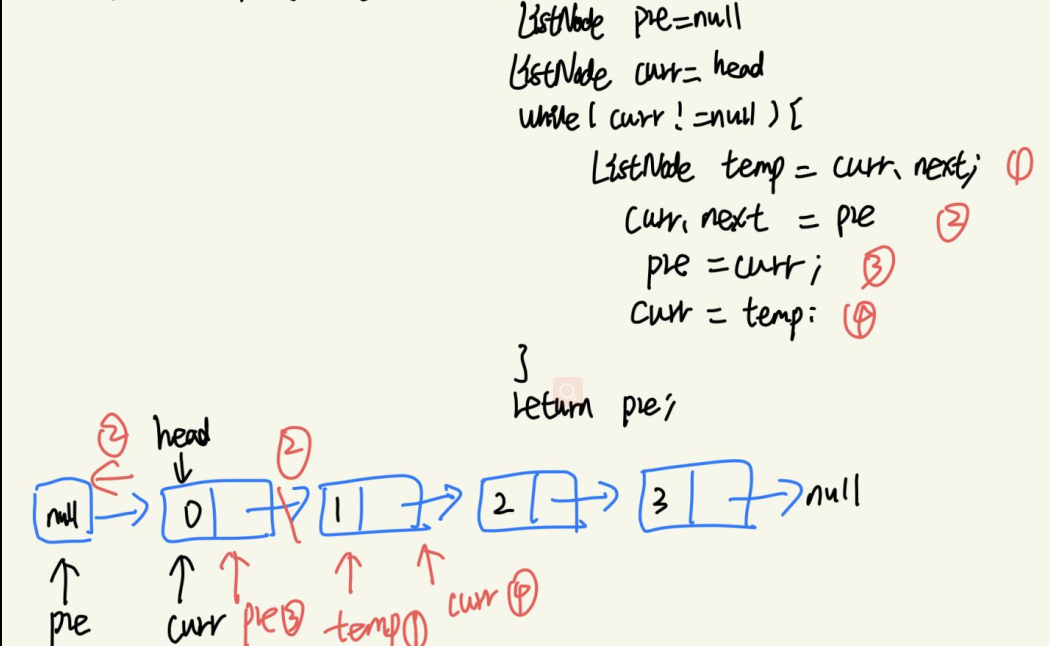 ListNode pre=null
ListNode curr= head
while( curr!=null){
ListNode temp = curr.next; ①
curr.next = pre ②
pre =curr; ③
curr = temp; ④
}
return pre;
② head ②
null 0 1 2 3 null
pre curr pre③ temp① curr④